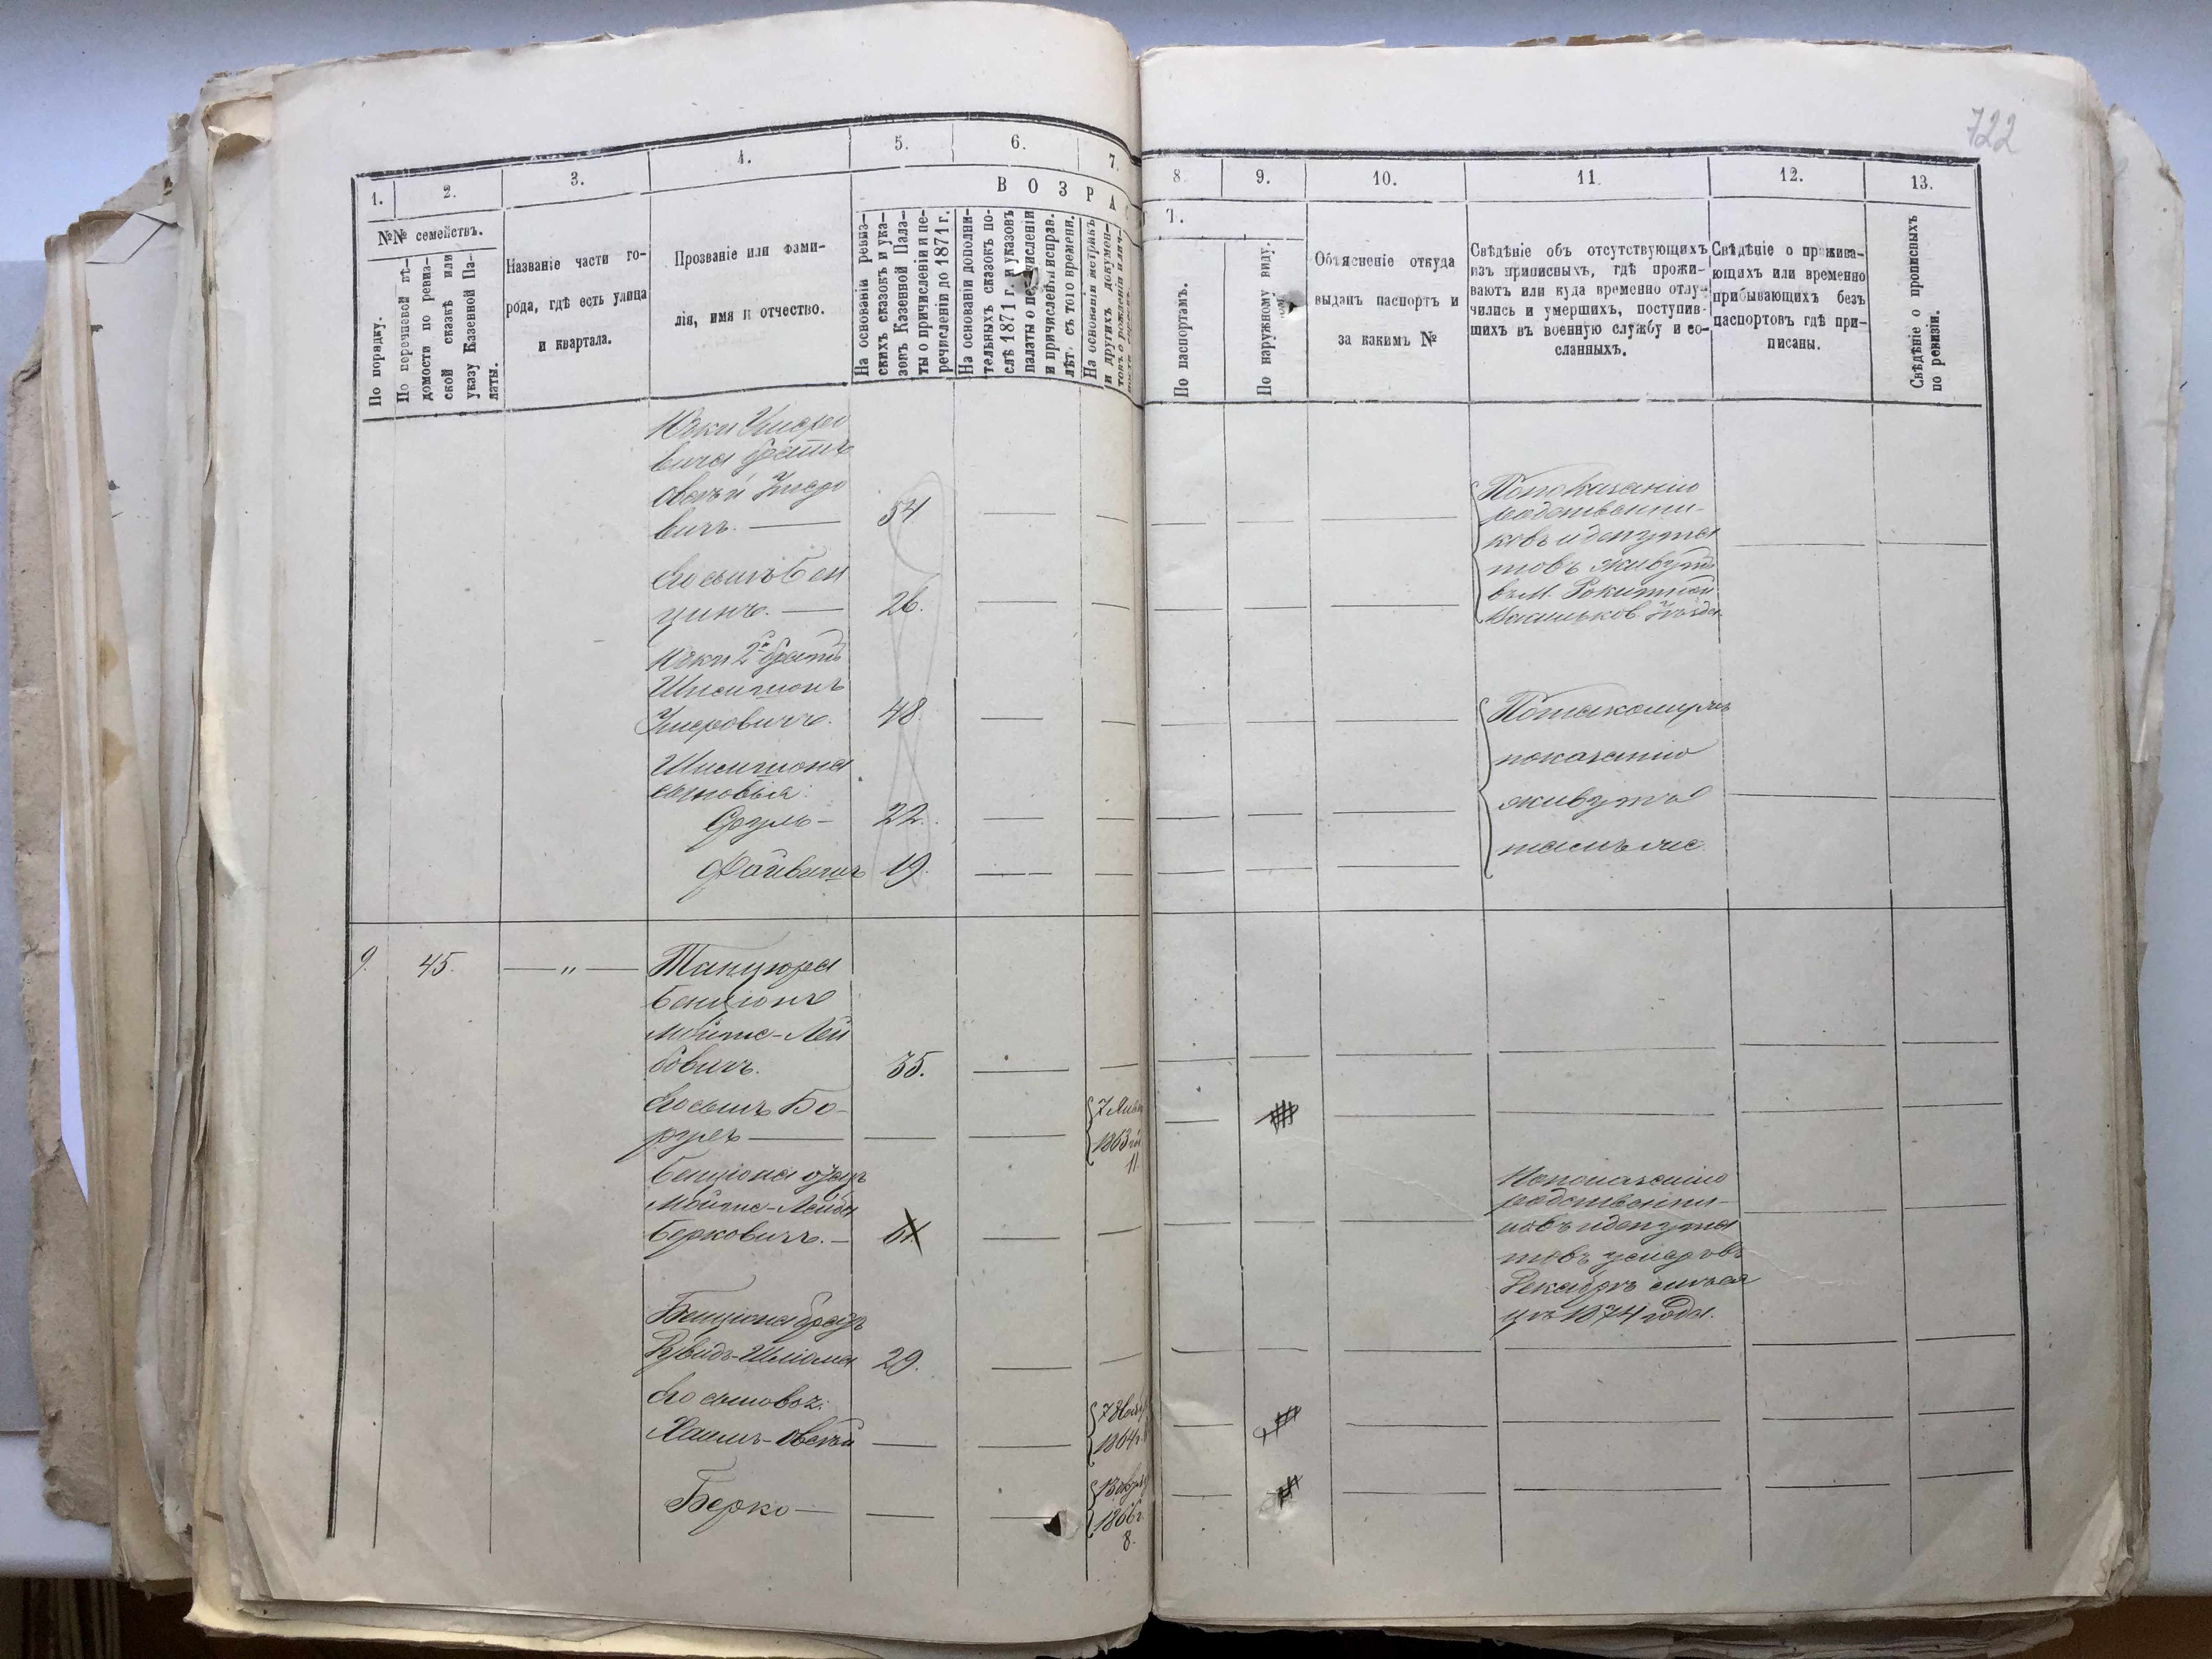 722
1.
2.
3.
4.
5.
6.
7.
8
9.
10.
11
12.
13.
В О З Р А
Т.
№№ семействъ.
По порядку.
По перечневой вѣ-
домости по ревиз-
ской сказкѣ или
указу Казенной Па-
латы.
Названіе части го-
рода, гдѣ есть улица
и квартала.
Прозваніе или фами-
лія, имя и отчество.
На основаніи ревиз-
скихъ сказокъ и ука-
зовъ Казенной Пала-
ты о причисленіи и пе-
речисленіи до 1871 г.
На основаніи дополни-
тельныхъ сказокъ по-
слѣ 1871 г. и указовъ
палаты о перечисленіи
и причислен. исправ.
лѣт. съ того времени.
На основаніи метрикъ
и другихъ докумен-
По паспортамъ.
По наружному виду.
Объясненіе откуда
выданъ паспортъ и
за какимъ №
Свѣдѣніе объ отсутствующихъ
изъ приписныхъ, гдѣ прожи-
ваютъ или куда временно отлу-
чились и умершихъ, поступив-
шихъ въ военную службу и со-
сланныхъ.
Свѣдѣніе о прожива-
ющихъ или временно
прибывающихъ безъ
паспортовъ гдѣ при-
писаны.
Свѣдѣніе о прописныхъ
по ревизіи.
вича братъ
вичъ. — 54
По показанію
родственни-
ковъ и депута
товъ живутъ
въ м. Рокитной
Васильков. Уѣзда
Его сынъ Бен
ціонъ. — 26.
2й братъ
48.
сыновья:
Сруль — 22.
Файвишъ 19.
По такому же
показанію
живутъ
тамъ же
9. 45. — " —
Бенціонъ
Мойше-Лей
бовичъ. 35.
Его сынъ Бо-
рухъ —
7 Янв
1863 г
11
Бенціона отецъ
Мойше-Лейба
Берковичъ. — 61
По показанію
родственни-
ковъ и депута
товъ умеръ въ
Декабрѣ мѣся
цѣ 1874 года.
Бенціона братъ
29.
Его сыновья:
Хаимъ-Овсѣй
1864 г.
Берко —
1866 г.
8.